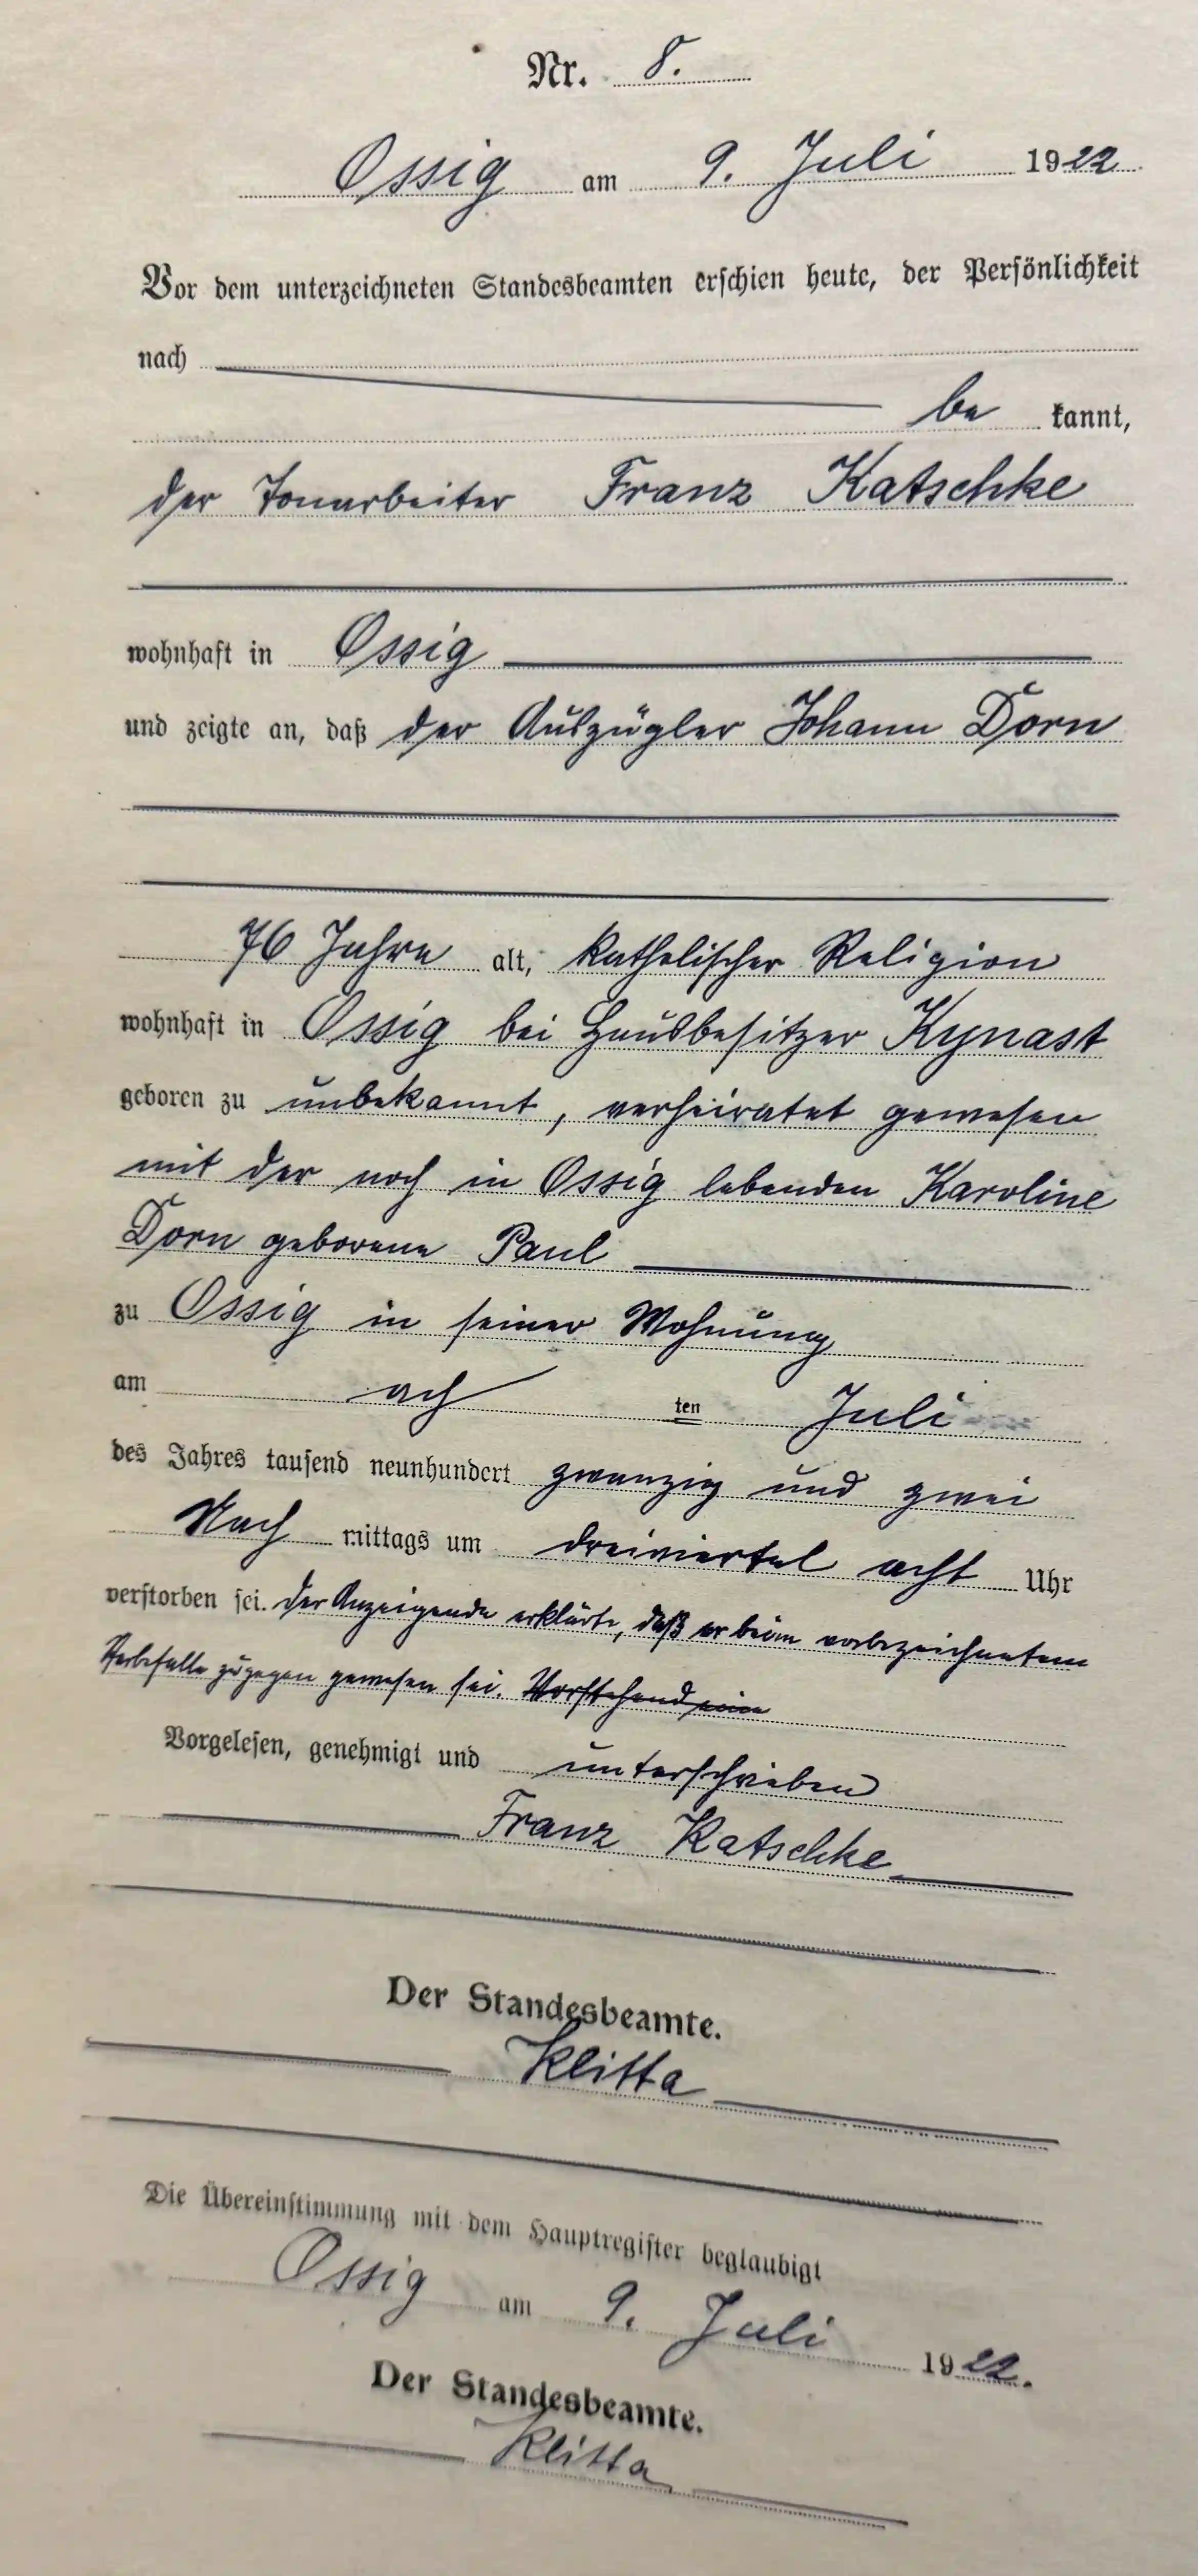 Nr. 8.
Ossig am 9. Juli 1922
Vor dem unterzeichneten Standesbeamten erschien heute, der Persönlichkeit
nach
be kannt,
der Tonarbeiter Franz Katschke
wohnhaft in Ossig
und zeigte an, daß der Auszügler Johann Dorn
76 Jahre alt, katholischer Religion
wohnhaft in Ossig bei Hausbesitzer Kynast
geboren zu unbekannt, verheiratet gewesen
mit der noch in Ossig lebenden Karoline
Dorn geborene Paul
zu Ossig in seiner Wohnung
am ach ten Juli
des Jahres tausend neunhundert zwanzig und zwei
Nach mittags um dreiviertel acht Uhr
verstorben sei. Der Anzeigende erklärte, daß er beim vorbezeichneten
Sterbefalle zugegen gewesen sei. Vorstehend
Vorgelesen, genehmigt und unterschrieben
Franz Katschke
Der Standesbeamte.
Klitta
Die Übereinstimmung mit dem Hauptregister beglaubigt
Ossig am 9. Juli 1922.
Der Standesbeamte.
Klitta